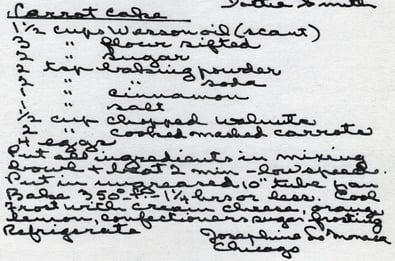 Carrot Cake Dottie Smith
1 1/2 cups Wesson oil (scant)
3 " flour sifted
2 " sugar
2 tsp baking powder
2 " soda
1 " cinnamon
1 " salt
1/2 cup chopped walnuts
2 " cooked mashed carrots
4 eggs
Put all ingredients in mixing
bowl + beat 2 min - low speed.
Put in ungreased 10" tube pan
Bake 350° - 1 1/4 hrs or less. Cool
Frost with cream cheese, orange
lemon, confectioners sugar, frosting
Refrigerate Josephine Lo Monaca
Chicago